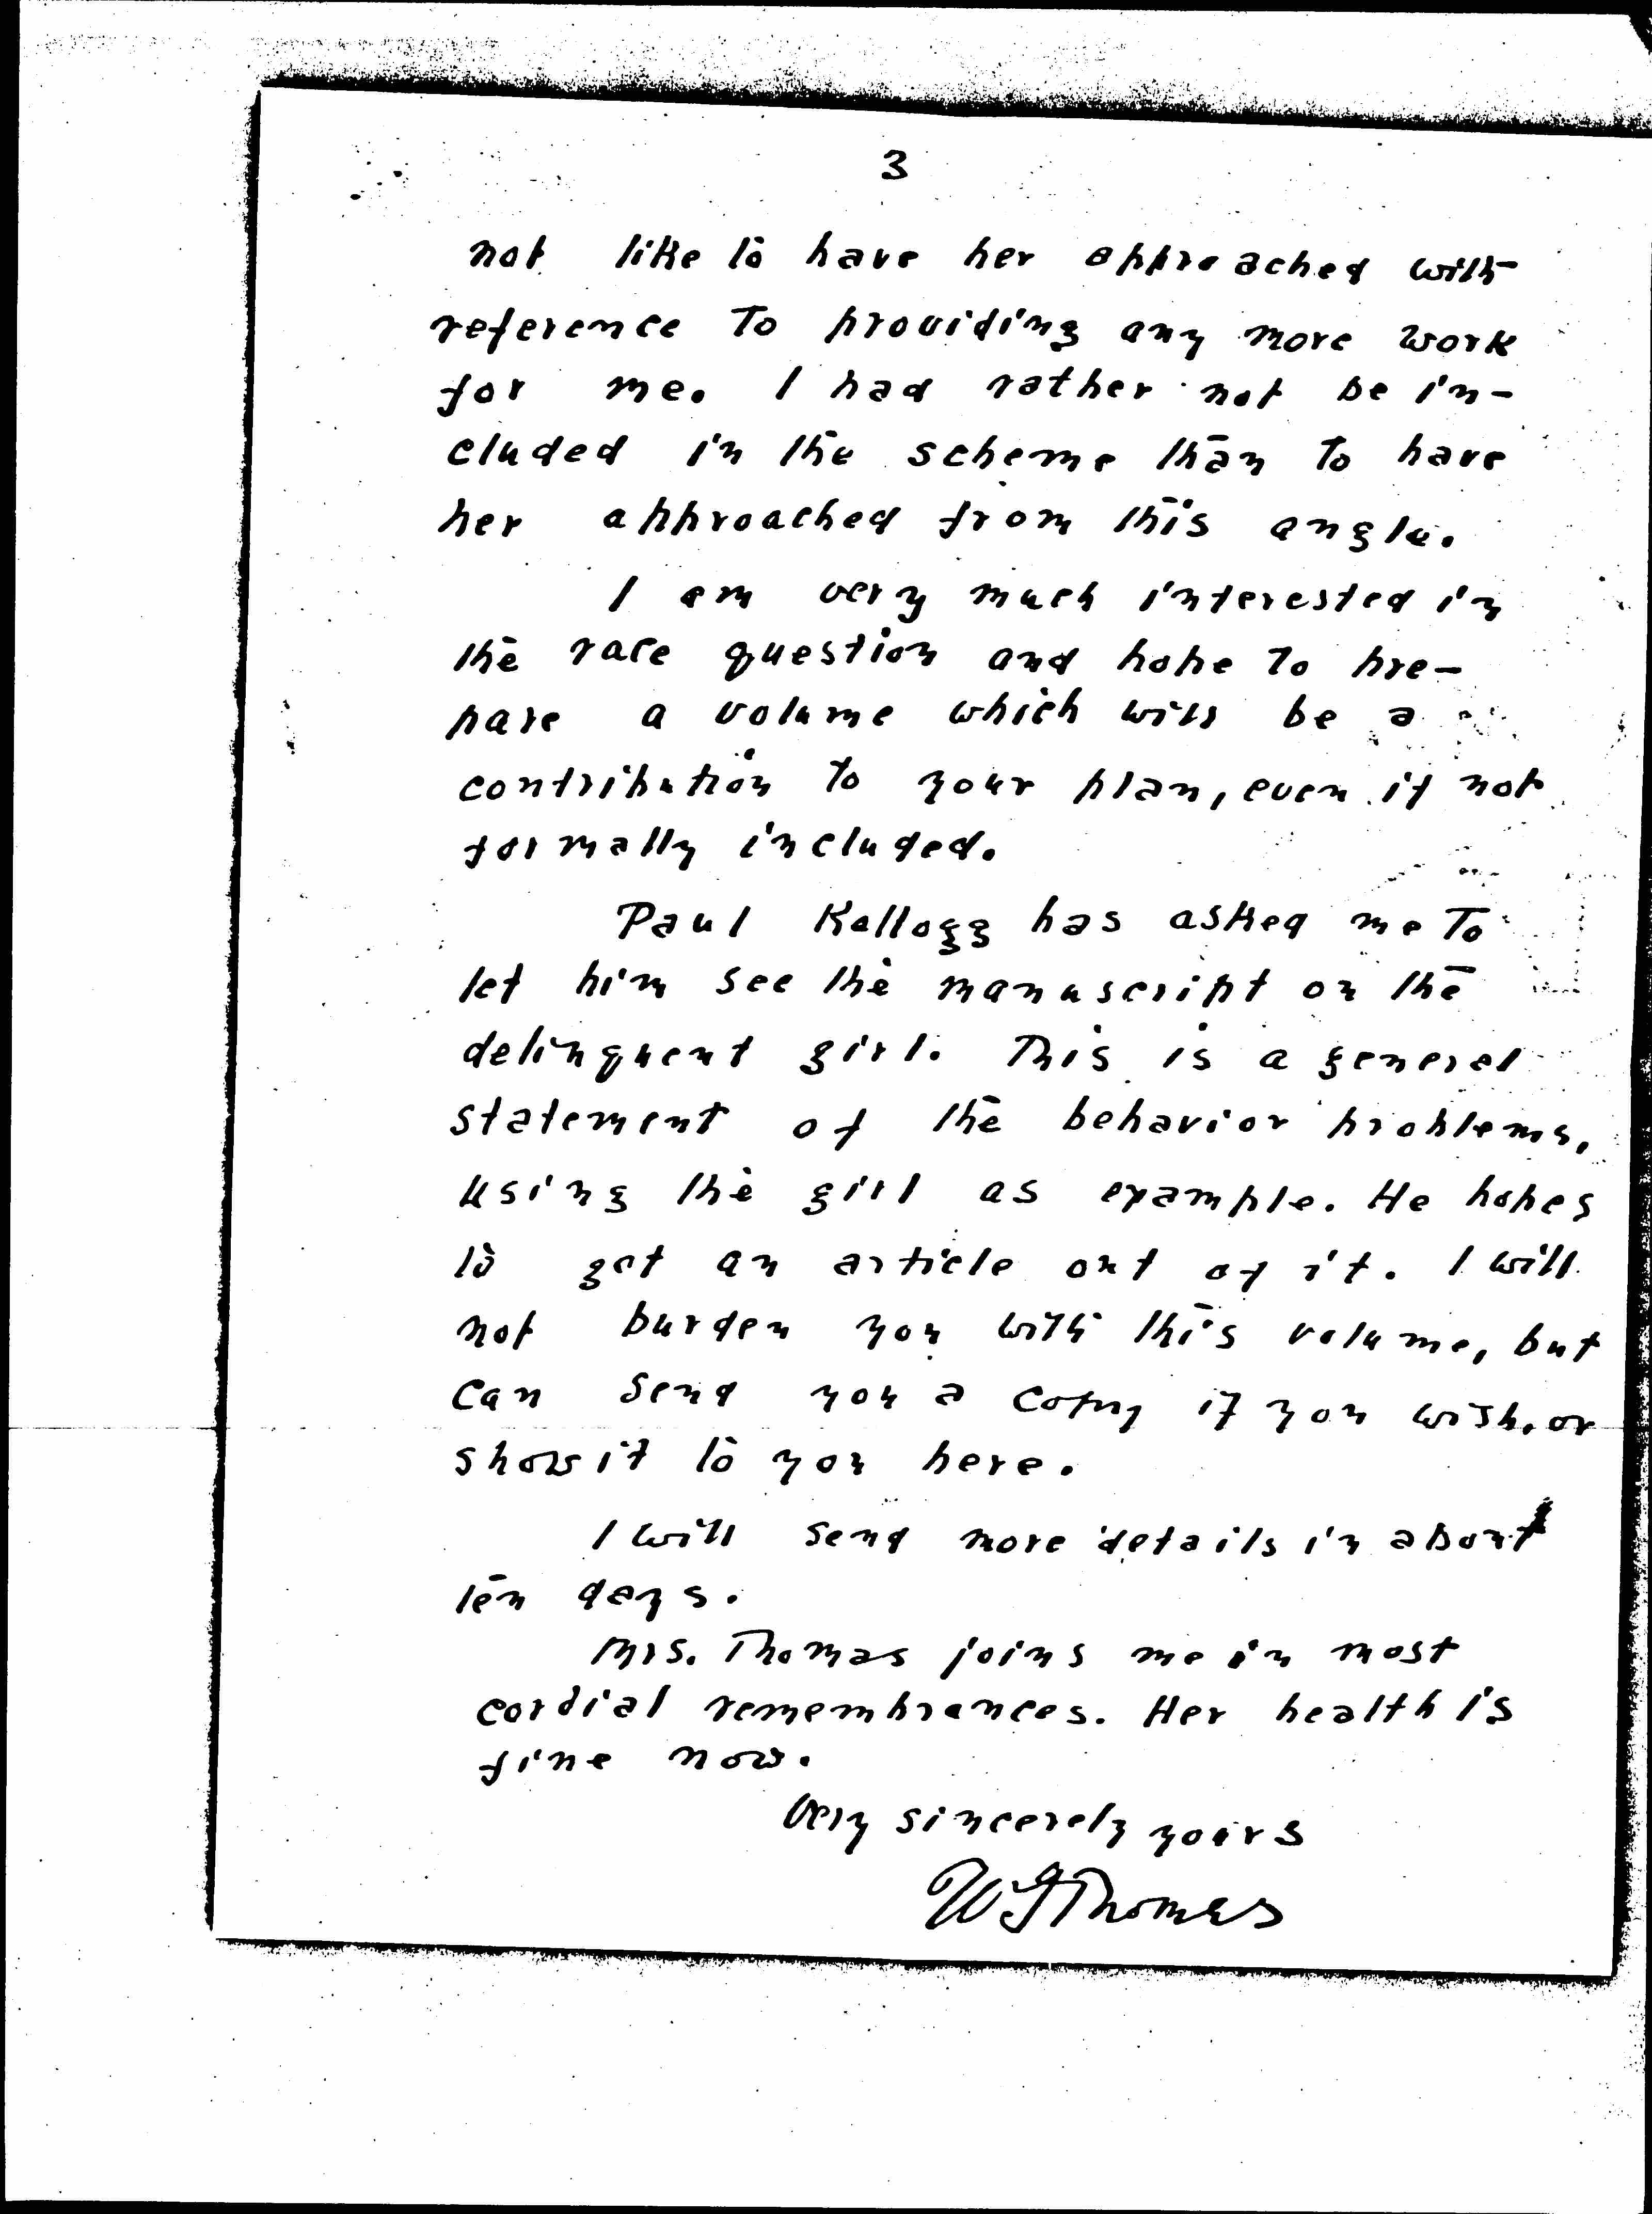 3
not like to have her approached with
reference To providing any more work
for me. I had rather not be in-
cluded in the scheme than To have
her approached from this angle.
I am very much interested in
the race question and hope To pre-
pare a volume which will be a
contribution to your plan, even if not
formally included.
Paul Kellogg has asked me To
let him see the manuscript on the
delinquent girl. This is a general
statement of the behavior problems,
using the girl as example. He hopes
to get an article out of it. I will
not burden you with this volume, but
can send you a copy if you wish, or
show it to you here.
I will send more details in about
ten days.
Mrs. Thomas joins me in most
cordial remembrances. Her health is
fine now.
Very sincerely yours
W I Thomas